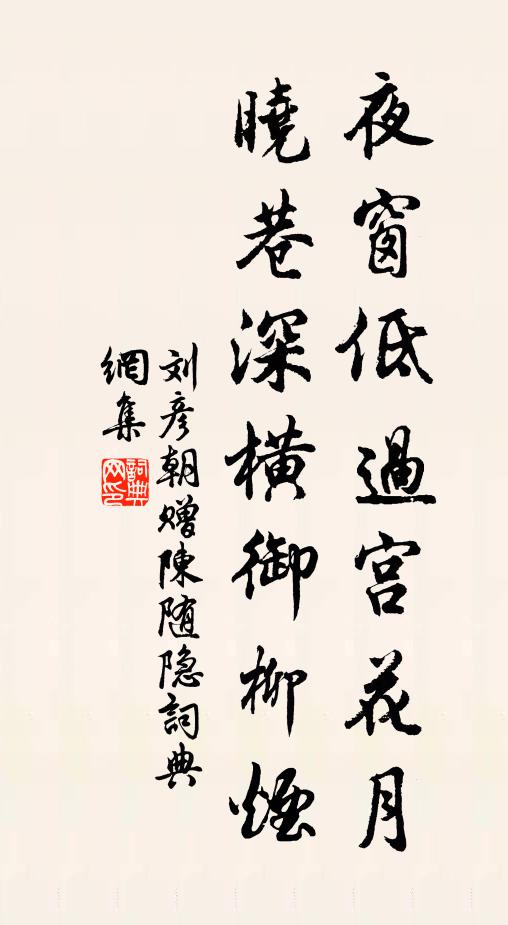 夜窗低過宫花月
曉巷深横御柳煙
刘彦朝赠陳随隐詞典
網集
詞典网印